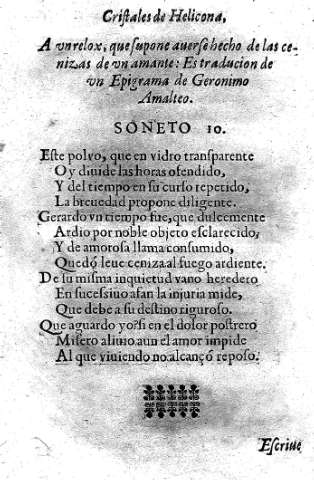 Cristales de Helicona,
A vn relox, que supone auerse hecho de las ce-
nizas de vn amante: Es traducion de
vn Epigrama de Geronimo
Amalteo.
SONETO 10.
Este polvo, que en vidro transparente
Oy diuide las horas ofendido,
Y del tiempo en su curso repetido,
La breuedad propone diligente.
Gerardo vn tiempo fue, que dulcemente
Ardio por noble objeto esclarecido,
Y de amorosa llama consumido,
Quedó leue ceniza al fuego ardiente.
De su misma inquietud vano heredero
En sucessiuo afan la injuria mide,
Que debe a su destino riguroso.
Que aguardo yo? si en el dolor postrero
Misero aliuio aun el amor impide
Al que viuiendo no alcançó reposo.
Escriue